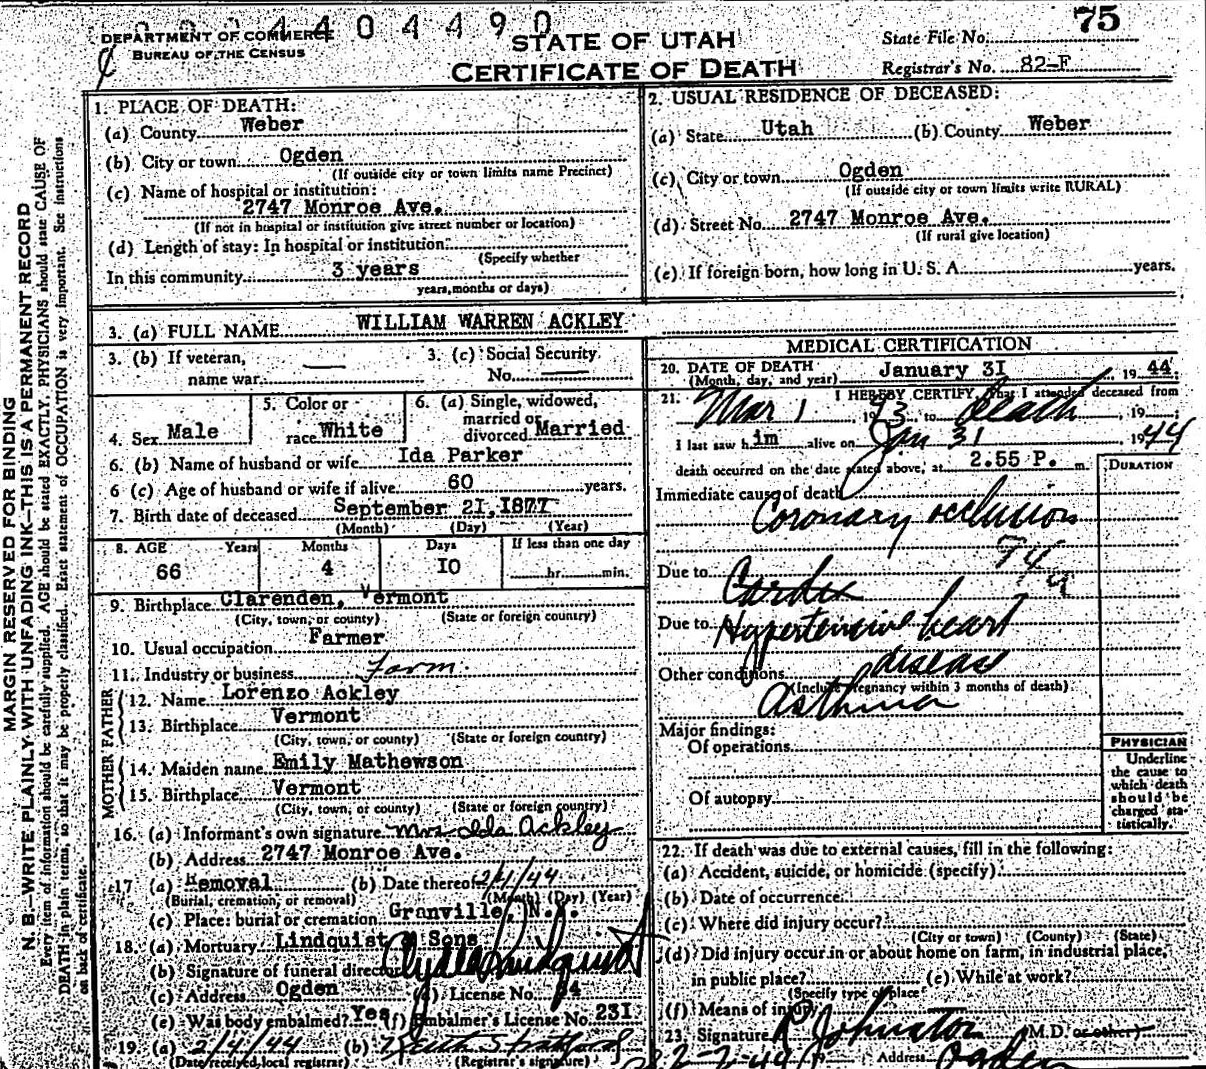 2 2 2 4 4 0 4 4 9 0
DEPARTMENT OF COMMERCE
BUREAU OF THE CENSUS
STATE OF UTAH
CERTIFICATE OF DEATH
State File No. 75
Registrar's No. 82-F
MARGIN RESERVED FOR BINDING
N. B.—WRITE PLAINLY WITH UNFADING INK—THIS IS A PERMANENT RECORD
Every item of information should be carefully supplied. AGE should be stated EXACTLY. PHYSICIANS should state CAUSE OF
DEATH in plain terms, so that it may be properly classified. Exact statement of OCCUPATION is very important. See instructions
on back of certificate.
1. PLACE OF DEATH:
(a) County Weber
(b) City or town Ogden
(If outside city or town limits name Precinct)
(c) Name of hospital or institution:
2747 Monroe Ave.
(If not in hospital or institution give street number or location)
(d) Length of stay: In hospital or institution
(Specify whether
In this community 3 years
years, months or days)
2. USUAL RESIDENCE OF DECEASED:
(a) State Utah (b) County Weber
(c) City or town Ogden
(If outside city or town limits write RURAL)
(d) Street No. 2747 Monroe Ave.
(If rural give location)
(e) If foreign born, how long in U. S. A. years.
3. (a) FULL NAME WILLIAM WARREN ACKLEY
3. (b) If veteran, 3. (c) Social Security
name war — No. —
4. Sex Male
5. Color or
race White
6. (a) Single, widowed,
married or
divorced Married
6. (b) Name of husband or wife Ida Parker
6 (c) Age of husband or wife if alive 60 years.
7. Birth date of deceased September 21, 1877
(Month) (Day) (Year)
8. AGE Years Months Days If less than one day
66 4 10 hr. min.
9. Birthplace Clarenden, Vermont
(City, town, or county) (State or foreign country)
10. Usual occupation Farmer
11. Industry or business Farm
FATHER
12. Name Lorenzo Ackley
13. Birthplace Vermont
(City, town, or county) (State or foreign country)
MOTHER
14. Maiden name Emily Mathewson
15. Birthplace Vermont
(City, town, or county) (State or foreign country)
16. (a) Informant's own signature Mrs Ida Ackley
(b) Address 2747 Monroe Ave.
17 (a) Removal (b) Date thereof 2/1/44
(Burial, cremation, or removal) (Month) (Day) (Year)
(c) Place: burial or cremation Granville, N.Y.
18. (a) Mortuary Lindquist & Sons
(b) Signature of funeral director Clyde Lindquist
(c) Address Ogden (d) License No. 4
(e) Was body embalmed? Yes (f) Embalmer's License No. 231
19. (a) 2/4/44 (b) Stratford
(Date received local registrar) (Registrar's signature)
MEDICAL CERTIFICATION
20. DATE OF DEATH
(Month, day, and year) January 31, 1944
21. I HEREBY CERTIFY, That I attended deceased from
Mar 1, 1943 to death, 19
I last saw him alive on Jan 31, 1944
death occurred on the date stated above, at 2.55 P. m
DURATION
Immediate cause of death
Coronary occlusion
Due to
Due to Hypertensive heart
disease
Other conditions
(Include pregnancy within 3 months of death)
Asthma
Major findings:
Of operations
Of autopsy
PHYSICIAN
Underline
the cause to
which death
should be
charged sta-
tistically.
22. If death was due to external causes, fill in the following:
(a) Accident, suicide, or homicide (specify)
(b) Date of occurrence
(c) Where did injury occur?
(City or town) (County) (State)
(d) Did injury occur in or about home on farm, in industrial place,
in public place? (e) While at work?
(Specify type of place)
(f) Means of injury
23. Signature R Johnston M.D. or other)
Address Ogden